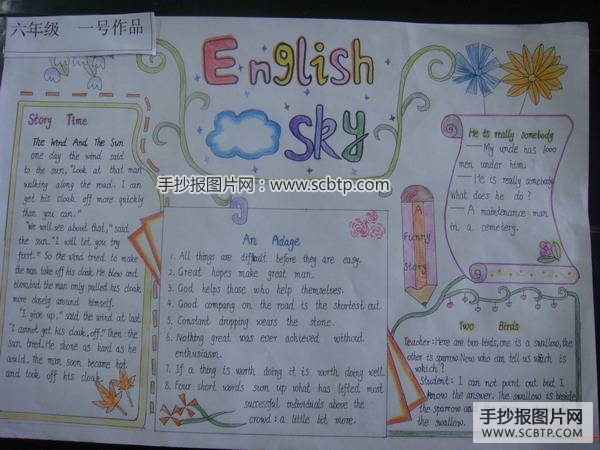 六年级 一号作品
English
Sky
Story Time
The Wind And The Sun
one day the wind said
to the sun, "Look at that man
walking along the road. I can
get his cloak off more quickly
than you can."
"We will see about that," said
the sun. "I will let you try
first." So the wind tried to make
the man take off his cloak. He blew and
blew, but the man only pulled his cloak
more closely around himself.
"I give up," said the wind at last
"I cannot get his cloak off." Then the
sun tried. He shone as hard as he
could. The man soon became hot
and took off his cloak.
手抄报图片网:www.scbtp.com
An Adage
1. All things are difficult before they are easy.
2. Great hopes make great man.
3. God helps those who help themselves.
4. Good company on the road is the shortest cut.
5. Constant dropping wears the stone.
6. Nothing great was ever achieved without
enthusiasm.
7. If a thing is worth doing it is worth doing well.
8. Four short words sum up what has lifted most
successful individuals above the
crowd: a little bit more.
A
Funny
Story
He is really somebody
— My uncle has 1000
men under him.
— He is really somebody.
What does he do?
— A maintenance man
in a cemetery.
Two Birds
Teacher: Here are two birds, one is a swallow, the
other is sparrow. Now who can tell us which is
which?
Student: I can not point out but I
know the answer. The swallow is beside
the sparrow and
the swallow.
手抄报图片网
WWW.SCBTP.COM